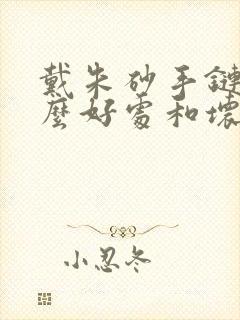 戴朱砂手鏈
麼好處和壞
小忍冬